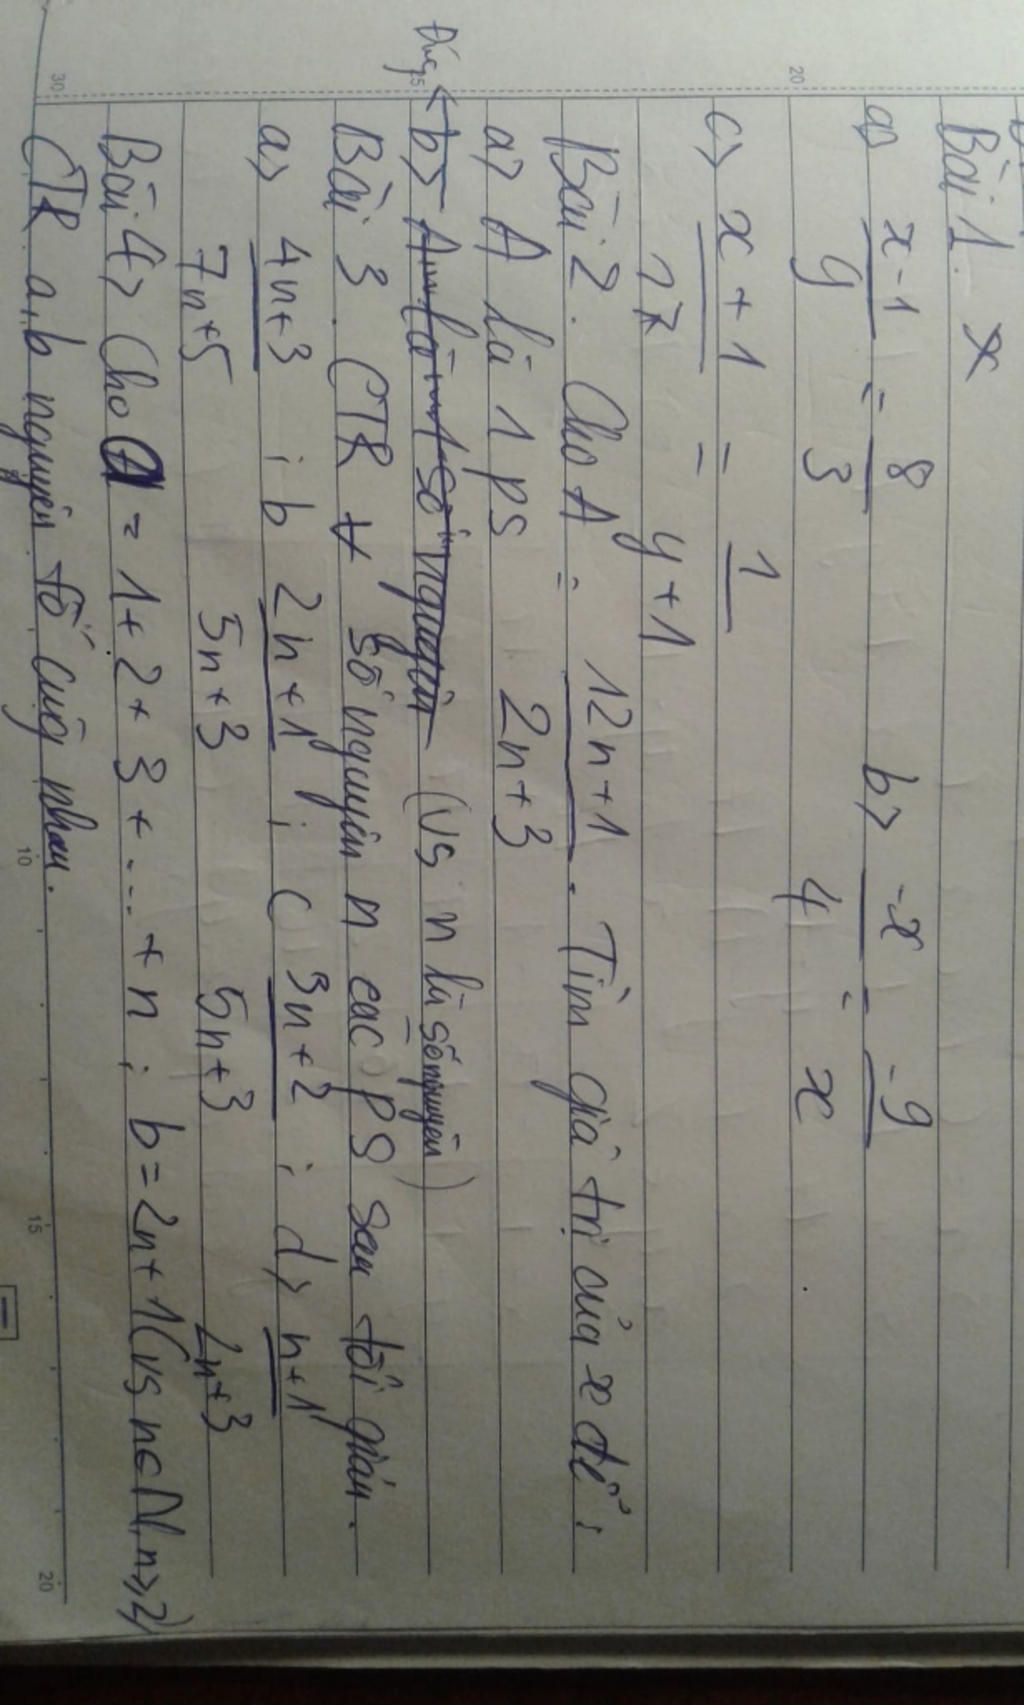 Bài 1. x
a) x-1 = 8 b) -x = -9
9 3 4 x
c) x+1 = 1
y+1
Bài 2. Cho A = 12n+1 . Tìm giá trị của x để :
a) A là 1 ps 2n+3
b) A là 1 số nguyên (vs n là số nguyên)
Bài 3. CTR ∀ số nguyên n các PS sau tối giản.
a) 4n+3 ; b 2n+1 ; c 3n+2 ; d) n+1
7n+5 5n+3 5n+3 2n+3
Bài 4) Cho a = 1+2+3+...+n ; b=2n+1 (vs n∈N, n≥2)
CTR a,b nguyên tố cùng nhau.
30
25
20
10
15
20